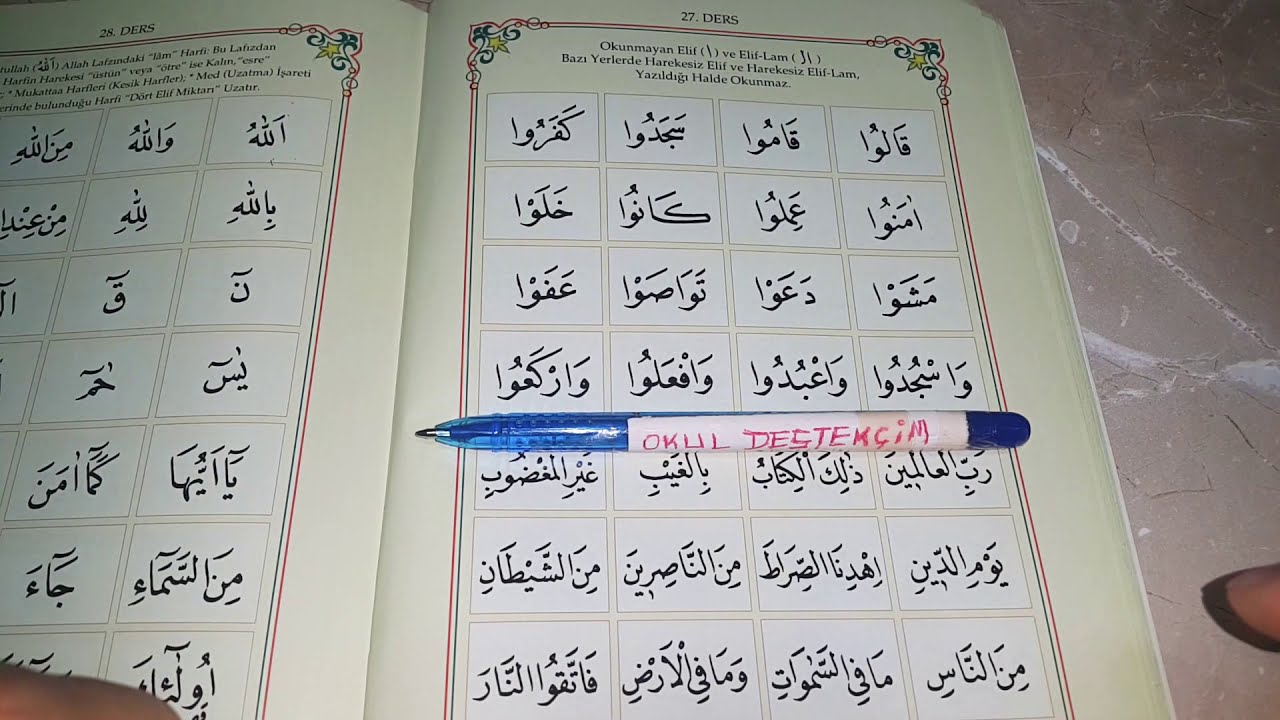 28. DERS
Allah Lafzındaki "lâm" Harfi: Bu Lafızdan
Harfin Harekesi "üstün" veya "ötre" ise Kalın, "esre"
* Mukattaa Harfleri (Kesik Harfler); * Med (Uzatma) İşareti
bulunduğu Harfi "Dört Elif Miktarı" Uzatır.
اَللّٰهُ وَاللّٰهُ مِنَ اللّٰهِ
بِاللّٰهِ لِلّٰهِ
نٓ قٓ
يٰسٓ حٰمٓ
يَٓا اَيُّهَا كَمَٓا اٰمَنَ
مِنَ السَّمَٓاءِ جَٓاءَ
اُولٰٓئِكَ
27. DERS
Okunmayan Elif ( ا ) ve Elif-Lam ( ال )
Bazı Yerlerde Harekesiz Elif ve Harekesiz Elif-Lam,
Yazıldığı Halde Okunmaz.
قَالُوا قَامُوا سَجَدُوا كَفَرُوا
اٰمَنُوا عَمِلُوا كَانُوا خَلَوْا
مَشَوْا دَعَوْا تَوَاصَوْا عَفَوْا
وَاسْجُدُوا وَاعْبُدُوا وَافْعَلُوا وَارْكَعُوا
OKUL DESTEKÇİM
رَبِّ الْعَالَمٖينَ ذٰلِكَ الْكِتَابُ بِالْغَيْبِ غَيْرِ الْمَغْضُوبِ
يَوْمِ الدّٖينِ اِهْدِنَا الصِّرَاطَ مِنَ النَّاصِرٖينَ مِنَ الشَّيْطَانِ
مِنَ النَّاسِ مَا فِي السَّمٰوَاتِ وَمَا فِي الْاَرْضِ فَاتَّقُوا النَّارَ